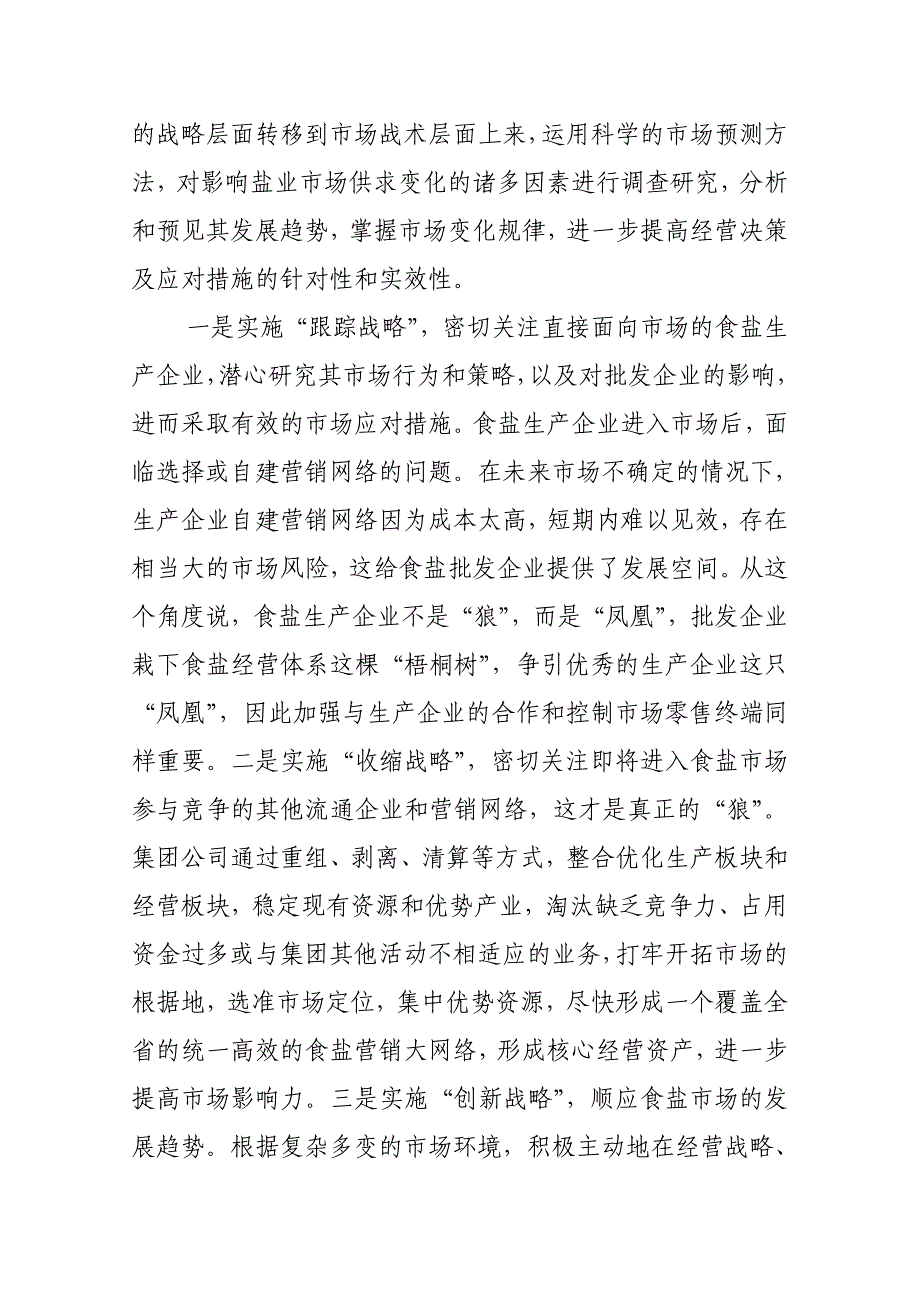 的战略层面转移到市场战术层面上来，运用科学的市场预测方
法，对影响盐业市场供求变化的诸多因素进行调查研究，分析
和预见其发展趋势，掌握市场变化规律，进一步提高经营决策
及应对措施的针对性和实效性。
一是实施“跟踪战略”，密切关注直接面向市场的食盐生
产企业，潜心研究其市场行为和策略，以及对批发企业的影响，
进而采取有效的市场应对措施。食盐生产企业进入市场后，面
临选择或自建营销网络的问题。在未来市场不确定的情况下，
生产企业自建营销网络因为成本太高，短期内难以见效，存在
相当大的市场风险，这给食盐批发企业提供了发展空间。从这
个角度说，食盐生产企业不是“狼”，而是“凤凰”，批发企业
栽下食盐经营体系这棵“梧桐树”，争引优秀的生产企业这只
“凤凰”，因此加强与生产企业的合作和控制市场零售终端同
样重要。二是实施“收缩战略”，密切关注即将进入食盐市场
参与竞争的其他流通企业和营销网络，这才是真正的“狼”。
集团公司通过重组、剥离、清算等方式，整合优化生产板块和
经营板块，稳定现有资源和优势产业，淘汰缺乏竞争力、占用
资金过多或与集团其他活动不相适应的业务，打牢开拓市场的
根据地，选准市场定位，集中优势资源，尽快形成一个覆盖全
省的统一高效的食盐营销大网络，形成核心经营资产，进一步
提高市场影响力。三是实施“创新战略”，顺应食盐市场的发
展趋势。根据复杂多变的市场环境，积极主动地在经营战略、